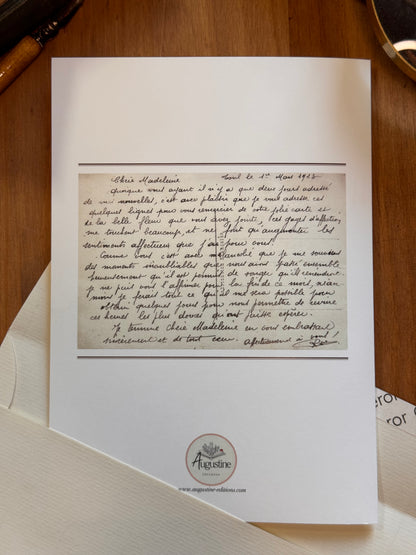 Chère Madeleine Toul le 1er Mars 1915
quoique vous ayant il n'y a que deux jours adressé
de mes nouvelles, c'est avec plaisir que je vous adresse ces
quelques lignes pour vous remercier de votre jolie carte et
de la belle fleur que vous avez jointe, ces gages d'affection
me touchent beaucoup et ne font qu'augmenter les
sentiments affectueux que j'ai pour vous.
Comme vous c'est avec mélancolie que je me souviens
des moments inoubliables que nous avons passé ensemble
heureusement qu'il est permis de songer qu'ils reviendront
je ne puis vous l'affirmer pour la fin de ce mois, néan
moins je ferai tout ce qu'il me sera possible pour
obtenir quelques jours pour nous permettre de revivre
ces heures les plus douces qu'on puisse espérer.
Je termine Chère Madeleine en vous embrassant
sincèrement et de tout cœur. affectueusement à vous!
Augustine
www.augustine-editions.com